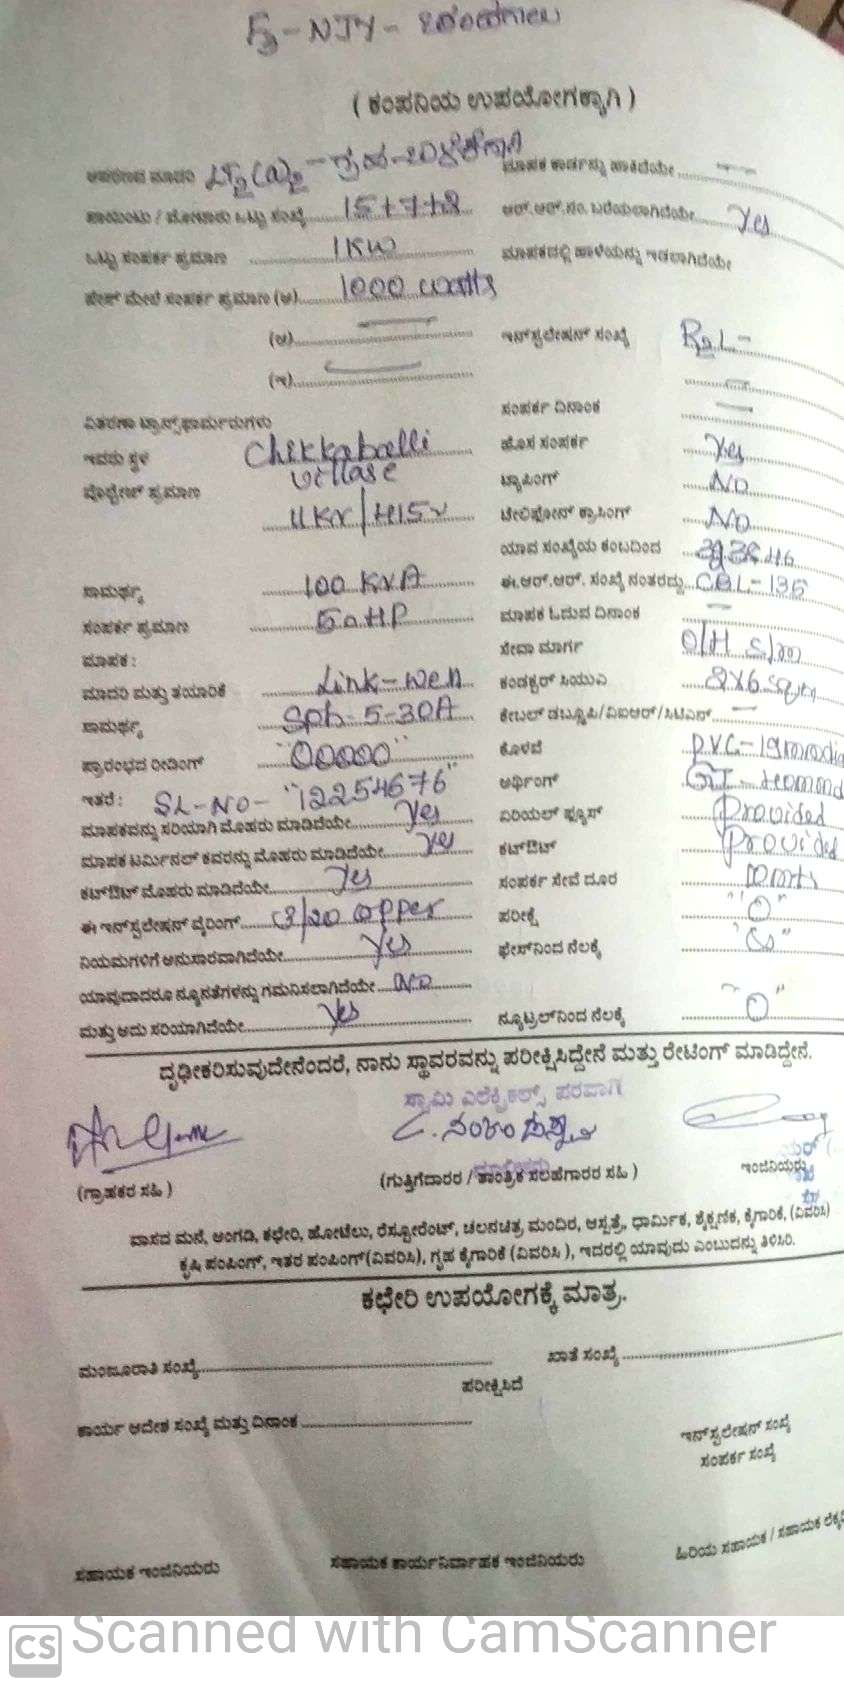 F3-NJY-
( ಕಂಪನಿಯ ಉಪಯೋಗಕ್ಕಾಗಿ )
LT2(a)2 -
ಮಾಪಕ ಕಾರ್ಡನ್ನು ಹಾಕಿದೆಯೇ
ಒಟ್ಟು ಸಂಖ್ಯೆ 15+7+8
ಆರ್.ಆರ್.ನಂ. ಬರೆಯಲಾಗಿದೆಯೇ Yes
ಒಟ್ಟು ಸಂಪರ್ಕ ಪ್ರಮಾಣ 1KW
ಮಾಪಕದಲ್ಲಿ ಹಾಳೆಯನ್ನು ಇಡಲಾಗಿದೆಯೇ
ಸಂಪರ್ಕ ಪ್ರಮಾಣ (ಅ) 1000 watts
(ಆ)
ಇನ್‌ಸ್ಟಲೇಷನ್ ಸಂಖ್ಯೆ
(ಇ)
ಸಂಪರ್ಕ ದಿನಾಂಕ
ವಿತರಣಾ ಟ್ರಾನ್ಸ್‌ಫಾರ್ಮರುಗಳು
ಹೊಸ ಸಂಪರ್ಕ Yes
ಇದರು ಸ್ಥಳ
ಟ್ಯಾಪಿಂಗ್ NO
ವೊಲ್ಟೇಜ್ ಪ್ರಮಾಣ
11KV/415v
ಟೆಲಿಫೋನ್ ಕ್ರಾಸಿಂಗ್ NO
ಯಾವ ಸಂಖ್ಯೆಯ ಕಂಬದಿಂದ
ಸಾಮರ್ಥ್ಯ 100 KVA
ಈ.ಆರ್.ಆರ್. ಸಂಖ್ಯೆ ನಂತರದ್ದು CBL-136
ಸಂಪರ್ಕ ಪ್ರಮಾಣ 50HP
ಮಾಪಕ ಓದುವ ದಿನಾಂಕ
ಮಾಪಕ :
ಸೇವಾ ಮಾರ್ಗ O/H
ಮಾದರಿ ಮತ್ತು ತಯಾರಿಕೆ Link-Well
ಕಂಡಕ್ಟರ್ ಸಿಯುಎ 2X6 sqmm
ಸಾಮರ್ಥ್ಯ Sph-5-30A
ಕೇಬಲ್ ಡಬ್ಲ್ಯೂಪಿ/ವಿಐಆರ್/ಸಿಟಿಎಸ್
ಪ್ರಾರಂಭದ ರೀಡಿಂಗ್ "00000"
ಕೊಳವೆ PVC-19mmdia
ಇತರೆ : SL-NO- "12254676"
ಅರ್ಥಿಂಗ್
ಮಾಪಕವನ್ನು ಸರಿಯಾಗಿ ಮೊಹರು ಮಾಡಿದೆಯೇ Yes
ಏರಿಯಲ್ ಫ್ಯೂಸ್ Provided
ಮಾಪಕ ಟರ್ಮಿನಲ್ ಕವರನ್ನು ಮೊಹರು ಮಾಡಿದೆಯೇ Yes
ಕಟ್‌ಔಟ್ Provided
ಕಟ್‌ಔಟ್ ಮೊಹರು ಮಾಡಿದೆಯೇ Yes
ಸಂಪರ್ಕ ಸೇವೆ ದೂರ
ಈ ಇನ್‌ಸ್ಟಲೇಷನ್ ವೈರಿಂಗ್ 3/20 copper
ಪರೀಕ್ಷೆ "0"
ನಿಯಮಗಳಿಗೆ ಅನುಸಾರವಾಗಿದೆಯೇ Yes
ಫೇಸ್‌ನಿಂದ ನೆಲಕ್ಕೆ
ಯಾವುದಾದರೂ ನ್ಯೂನತೆಗಳನ್ನು ಗಮನಿಸಲಾಗಿದೆಯೇ NO
ಮತ್ತು ಅದು ಸರಿಯಾಗಿದೆಯೇ Yes
ನ್ಯೂಟ್ರಲ್‌ನಿಂದ ನೆಲಕ್ಕೆ "0"
ದೃಢೀಕರಿಸುವುದೇನೆಂದರೆ, ನಾನು ಸ್ಥಾವರವನ್ನು ಪರೀಕ್ಷಿಸಿದ್ದೇನೆ ಮತ್ತು ರೇಟಿಂಗ್ ಮಾಡಿದ್ದೇನೆ.
ಸ್ವಾಮಿ ಎಲೆಕ್ಟ್ರಿಕಲ್ಸ್ ಪರವಾಗಿ
(ಗ್ರಾಹಕರ ಸಹಿ )
(ಗುತ್ತಿಗೆದಾರರ / ತಾಂತ್ರಿಕ ಸಲಹೆಗಾರರ ಸಹಿ )
ವಾಸದ ಮನೆ, ಅಂಗಡಿ, ಕಛೇರಿ, ಹೋಟೆಲು, ರೆಸ್ಟೋರೆಂಟ್, ಚಲನಚಿತ್ರ ಮಂದಿರ, ಆಸ್ಪತ್ರೆ, ಧಾರ್ಮಿಕ, ಶೈಕ್ಷಣಿಕ, ಕೈಗಾರಿಕೆ, (ವಿವರಿಸಿ)
ಕೃಷಿ ಪಂಪಿಂಗ್, ಇತರ ಪಂಪಿಂಗ್ (ವಿವರಿಸಿ), ಗೃಹ ಕೈಗಾರಿಕೆ (ವಿವರಿಸಿ ), ಇದರಲ್ಲಿ ಯಾವುದು ಎಂಬುದನ್ನು ತಿಳಿಸಿರಿ.
ಕಛೇರಿ ಉಪಯೋಗಕ್ಕೆ ಮಾತ್ರ.
ಮಂಜೂರಾತಿ ಸಂಖ್ಯೆ
ಖಾತೆ ಸಂಖ್ಯೆ
ಪರೀಕ್ಷಿಸಿದೆ
ಕಾರ್ಯ ಆದೇಶ ಸಂಖ್ಯೆ ಮತ್ತು ದಿನಾಂಕ
ಇನ್‌ಸ್ಟಲೇಷನ್ ಸಂಖ್ಯೆ
ಸಂಪರ್ಕ ಸಂಖ್ಯೆ
ಸಹಾಯಕ ಇಂಜಿನಿಯರು
ಸಹಾಯಕ ಕಾರ್ಯನಿರ್ವಾಹಕ ಇಂಜಿನಿಯರು
ಹಿರಿಯ ಸಹಾಯಕ / ಸಹಾಯಕ
CS Scanned with CamScanner